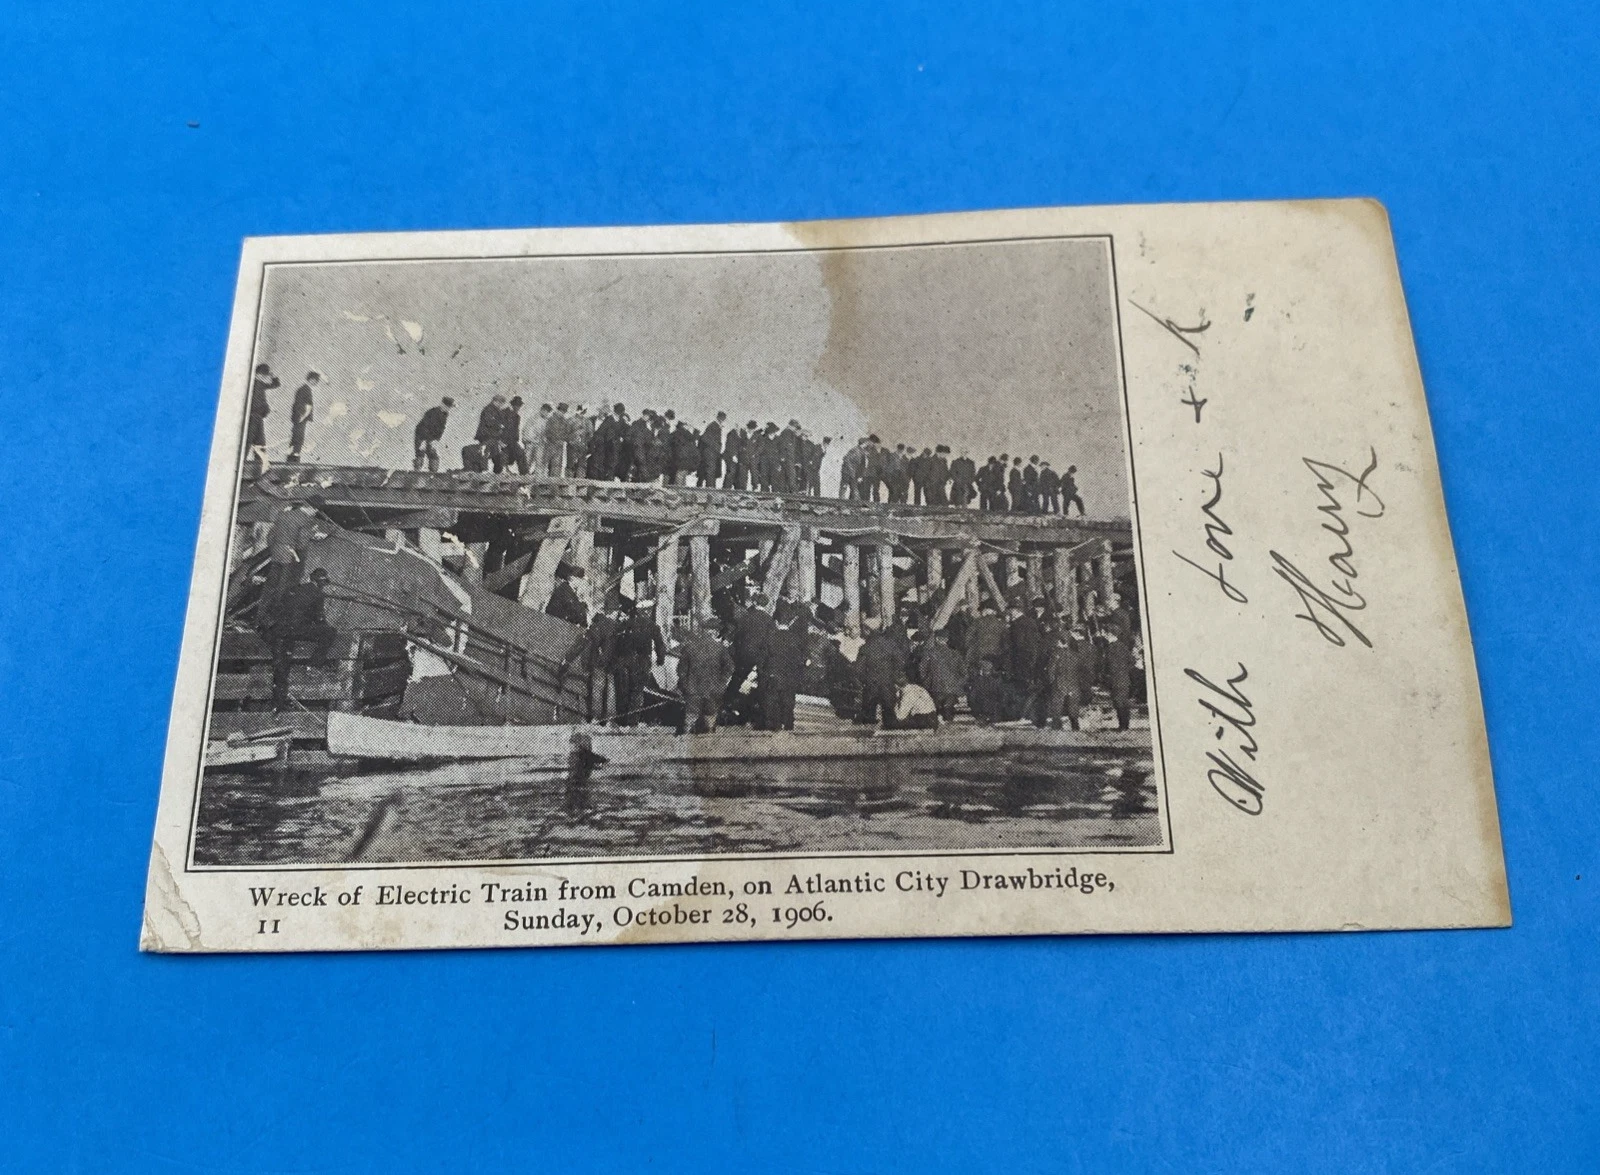 Wreck of Electric Train from Camden, on Atlantic City Drawbridge,
11 Sunday, October 28, 1906.
With love +
Harry